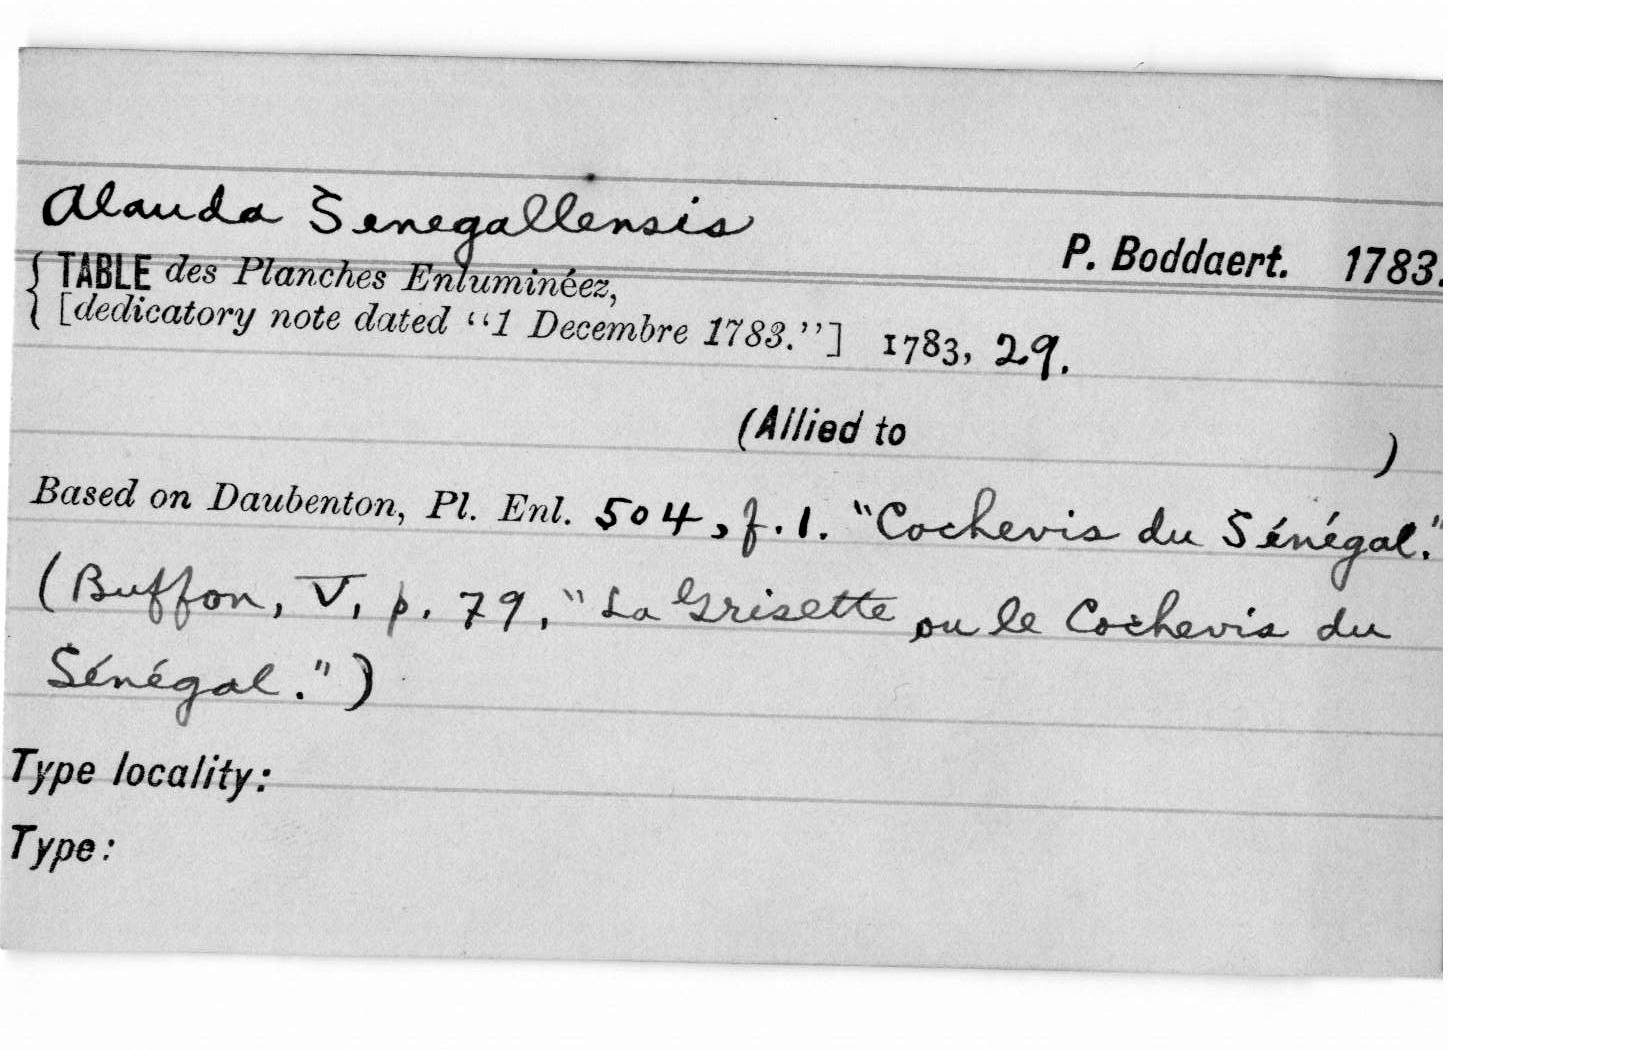 Alauda Senegallensis
P. Boddaert. 1783.
{ TABLE des Planches Enluminéez,
[dedicatory note dated “1 Decembre 1783.”] 1783, 29.
(Allied to )
Based on Daubenton, Pl. Enl. 504, f. 1. "Cochevis du Sénégal."
(Buffon, V, p. 79, "La Grisette ou le Cochevis du
Sénégal.")
Type locality:
Type: